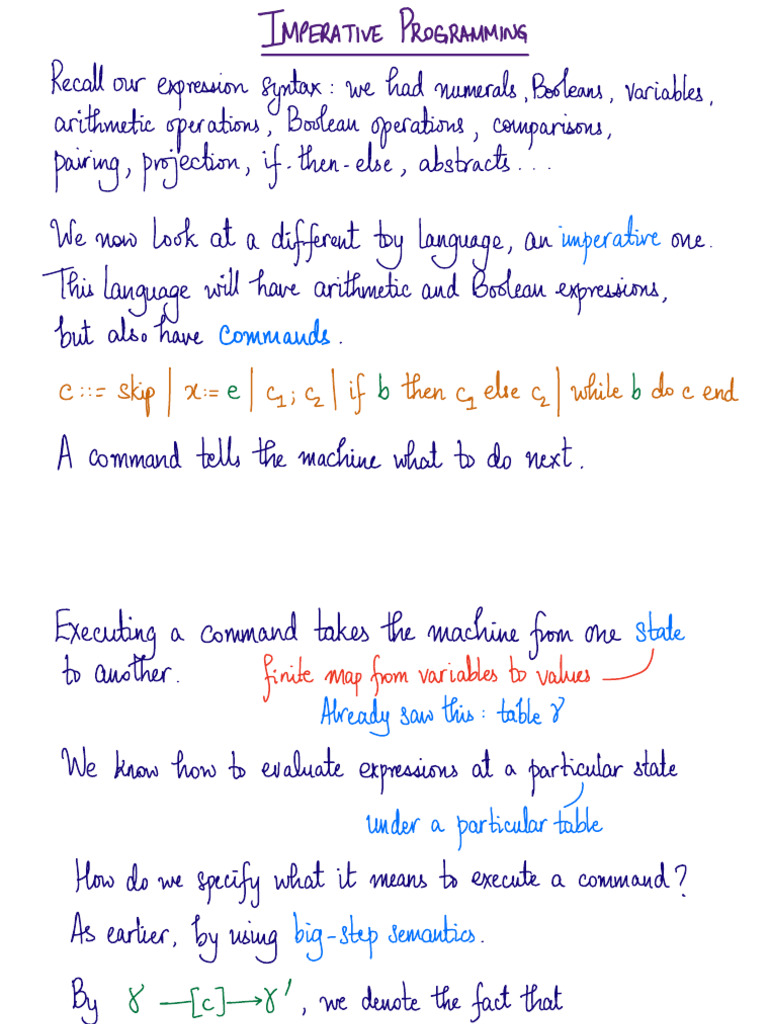 IMPERATIVE PROGRAMMING
Recall our expression syntax: we had numerals, Booleans, variables,
arithmetic operations, Boolean operations, comparisons,
pairing, projection, if-then-else, abstracts...
We now look at a different toy language, an imperative one.
This language will have arithmetic and Boolean expressions,
but also have commands.
c ::= skip | x := e | c₁ ; c₂ | if b then c₁ else c₂ | while b do c end
A command tells the machine what to do next.
Executing a command takes the machine from one state
to another. finite map from variables to values
Already saw this: table γ
We know how to evaluate expressions at a particular state
under a particular table
How do we specify what it means to execute a command?
As earlier, by using big-step semantics.
By γ —[c]→ γ', we denote the fact that